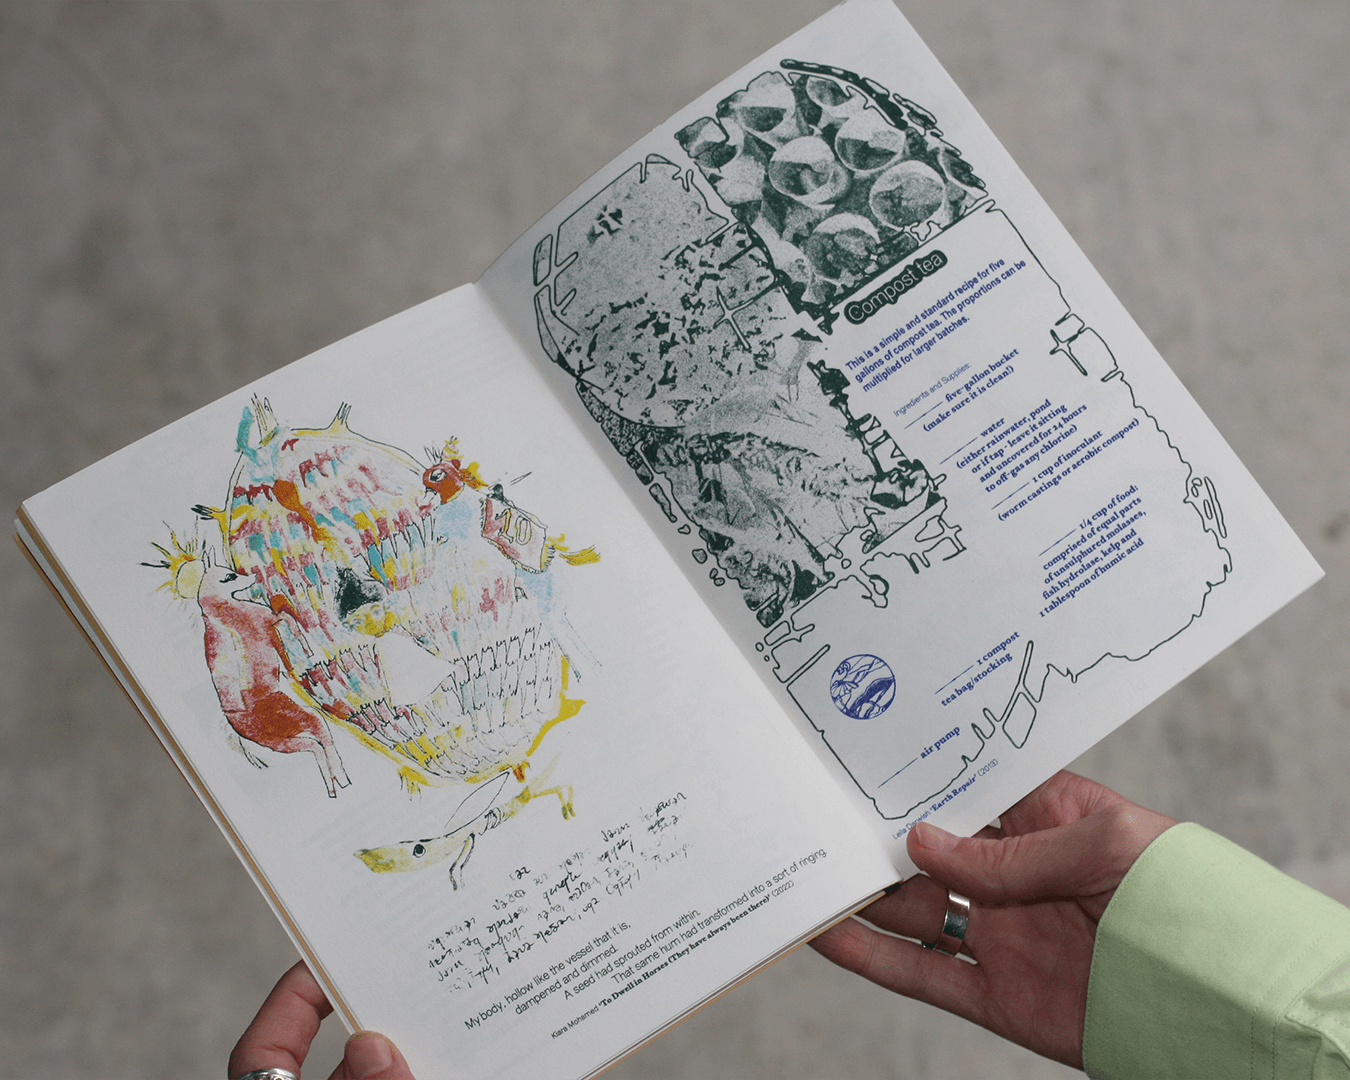 My body, hollow like the vessel that it is,
dampened and dimmed.
A seed had sprouted from within.
That same hum had transformed into a sort of ringing.
Kiara Mohamed 'To Dwell in Horses (They have always been there)' (2022)
Compost tea
This is a simple and standard recipe for five
gallons of compost tea. The proportions can be
multiplied for larger batches.
Ingredients and Supplies:
______ five-gallon bucket
(make sure it is clean!)
______ water
(either rainwater, pond
or if tap - leave it sitting
and uncovered for 24 hours
to off-gas any chlorine)
______ 1 cup of inoculant
(worm castings or aerobic compost)
______ 1/4 cup of food:
comprised of equal parts
of unsulphured molasses,
fish hydrolase, kelp and
1 tablespoon of humic acid
______ 1 compost
tea bag/stocking
______ air pump
Leila Darwish 'Earth Repair' (2013)